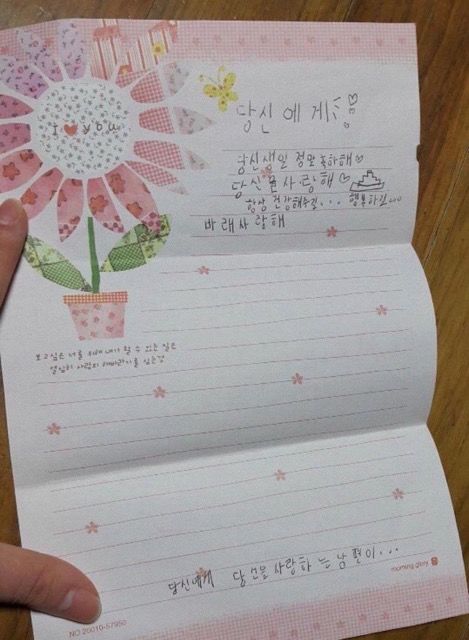 I ♥ you
당신에게
당신생일 정말 축하해
당신을 사랑해
항상 건강해주길... 행복하길...
바래사랑해
보고싶은 너를 위해 내가 할 수 있는 일은
열심히 사랑의 해바라기를 심는것
당신에게 당신을 사랑하는 남편이...
morning glory
NO 20010-57950